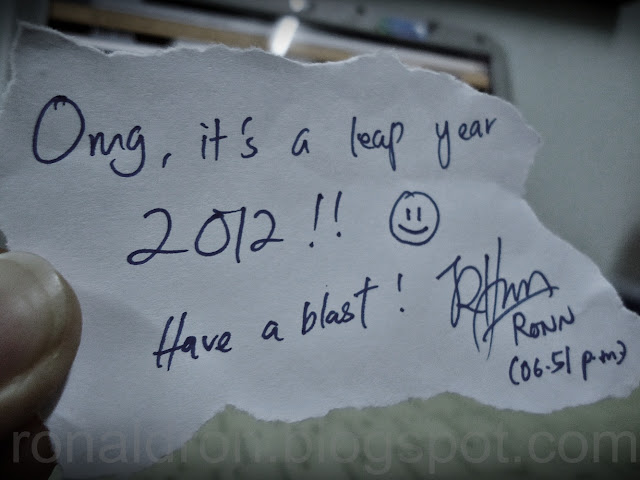 Omg, it's a leap year
2012!!
Have a blast!
RONN
(06.51 p.m)
ronaldron.blogspot.com